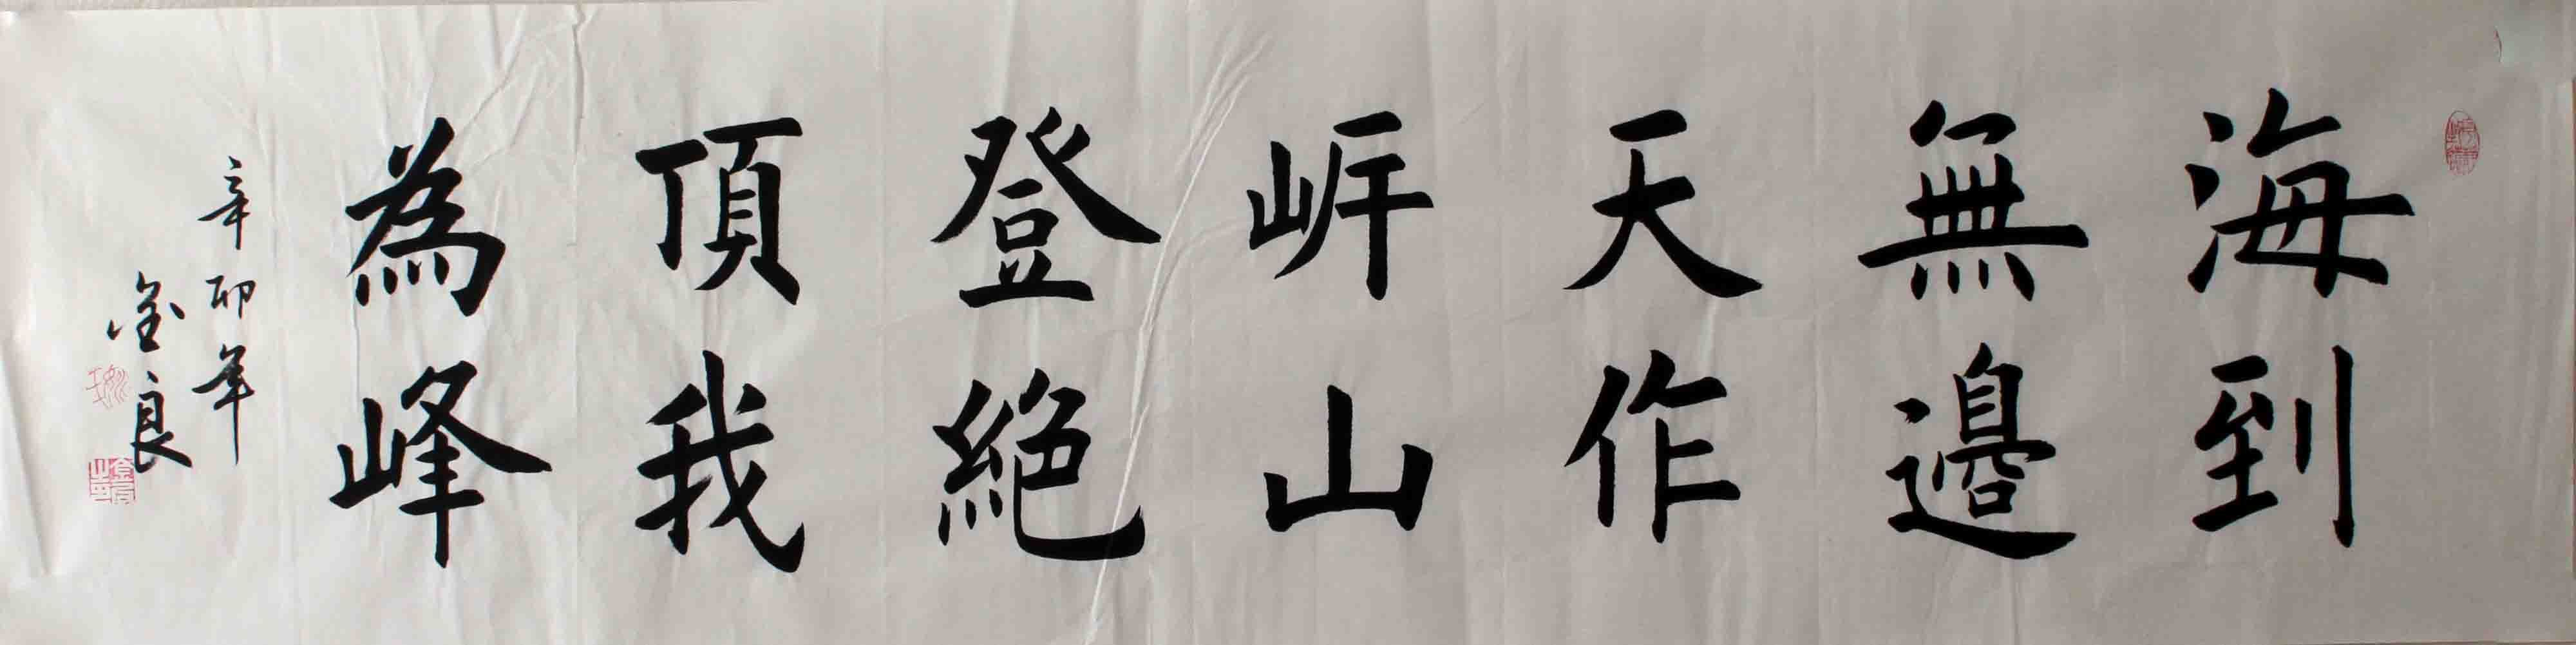 海到
無邊
天作
岸山
登絕
頂我
為峰
辛卯年
金良